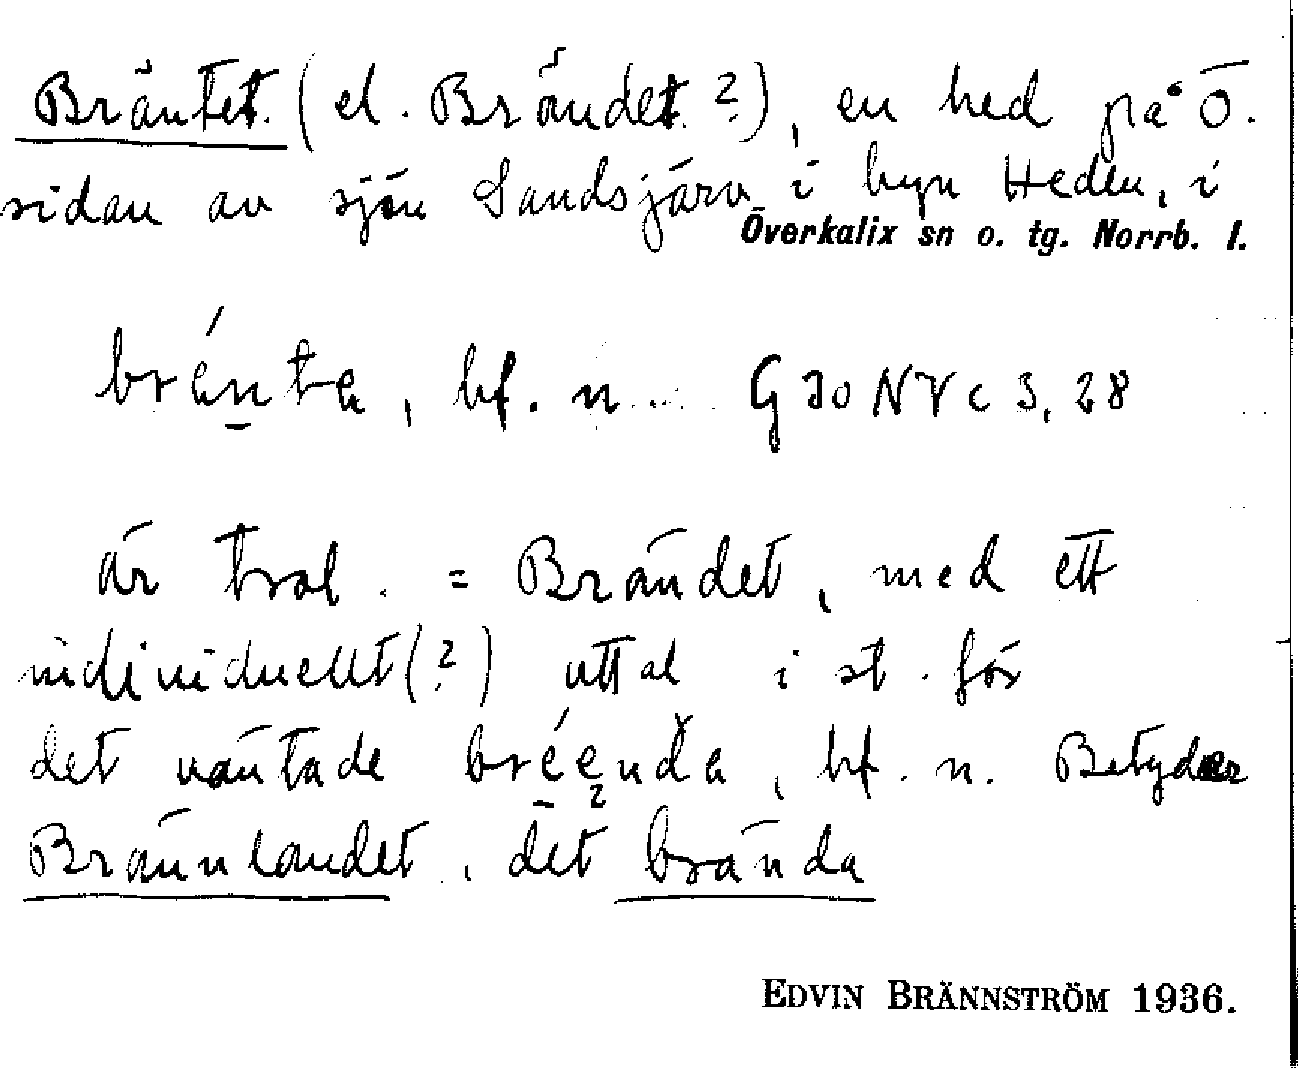 Bräntet. (el. Brändet. ?), en hed på Ö.
sidan av sjön Sandsjärv i byn Heden, i
Överkalix sn o. tg. Norrb. l.
brénta, bf. n. G 30 NV c 3, 28
är trol. = Brändet, med ett
individuellt (?) uttal i st. för
det väntade bréenda, bf. n. Betyder
Brännlandet, det brända
EDVIN BRÄNNSTRÖM 1936.